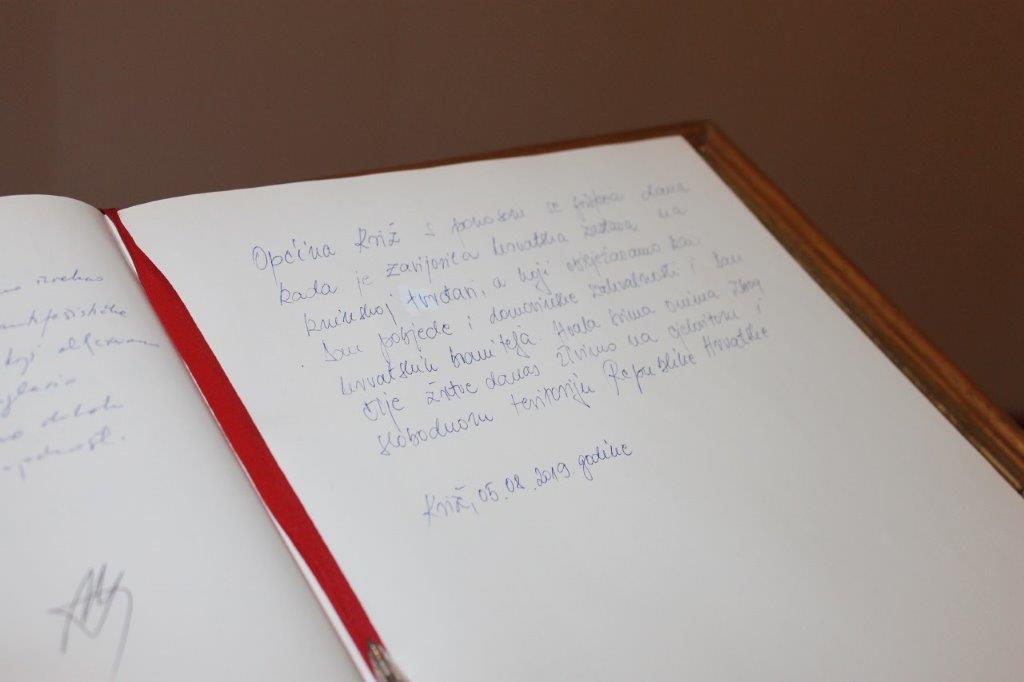 mo izrekao
antifašističke
koji
mo duboku
Općina Križ s ponosom se prisjeća dana
kada je zavijorila hrvatska zastava na
kninskoj tvrđavi, a koji obilježavamo kao
Dan pobjede i domovinske zahvalnosti i Dan
hrvatskih branitelja. Hvala svima onima zbog
čije žrtve danas živimo na cjelovitom i
slobodnom teritoriju Republike Hrvatske
Križ, 05.08.2019. godine